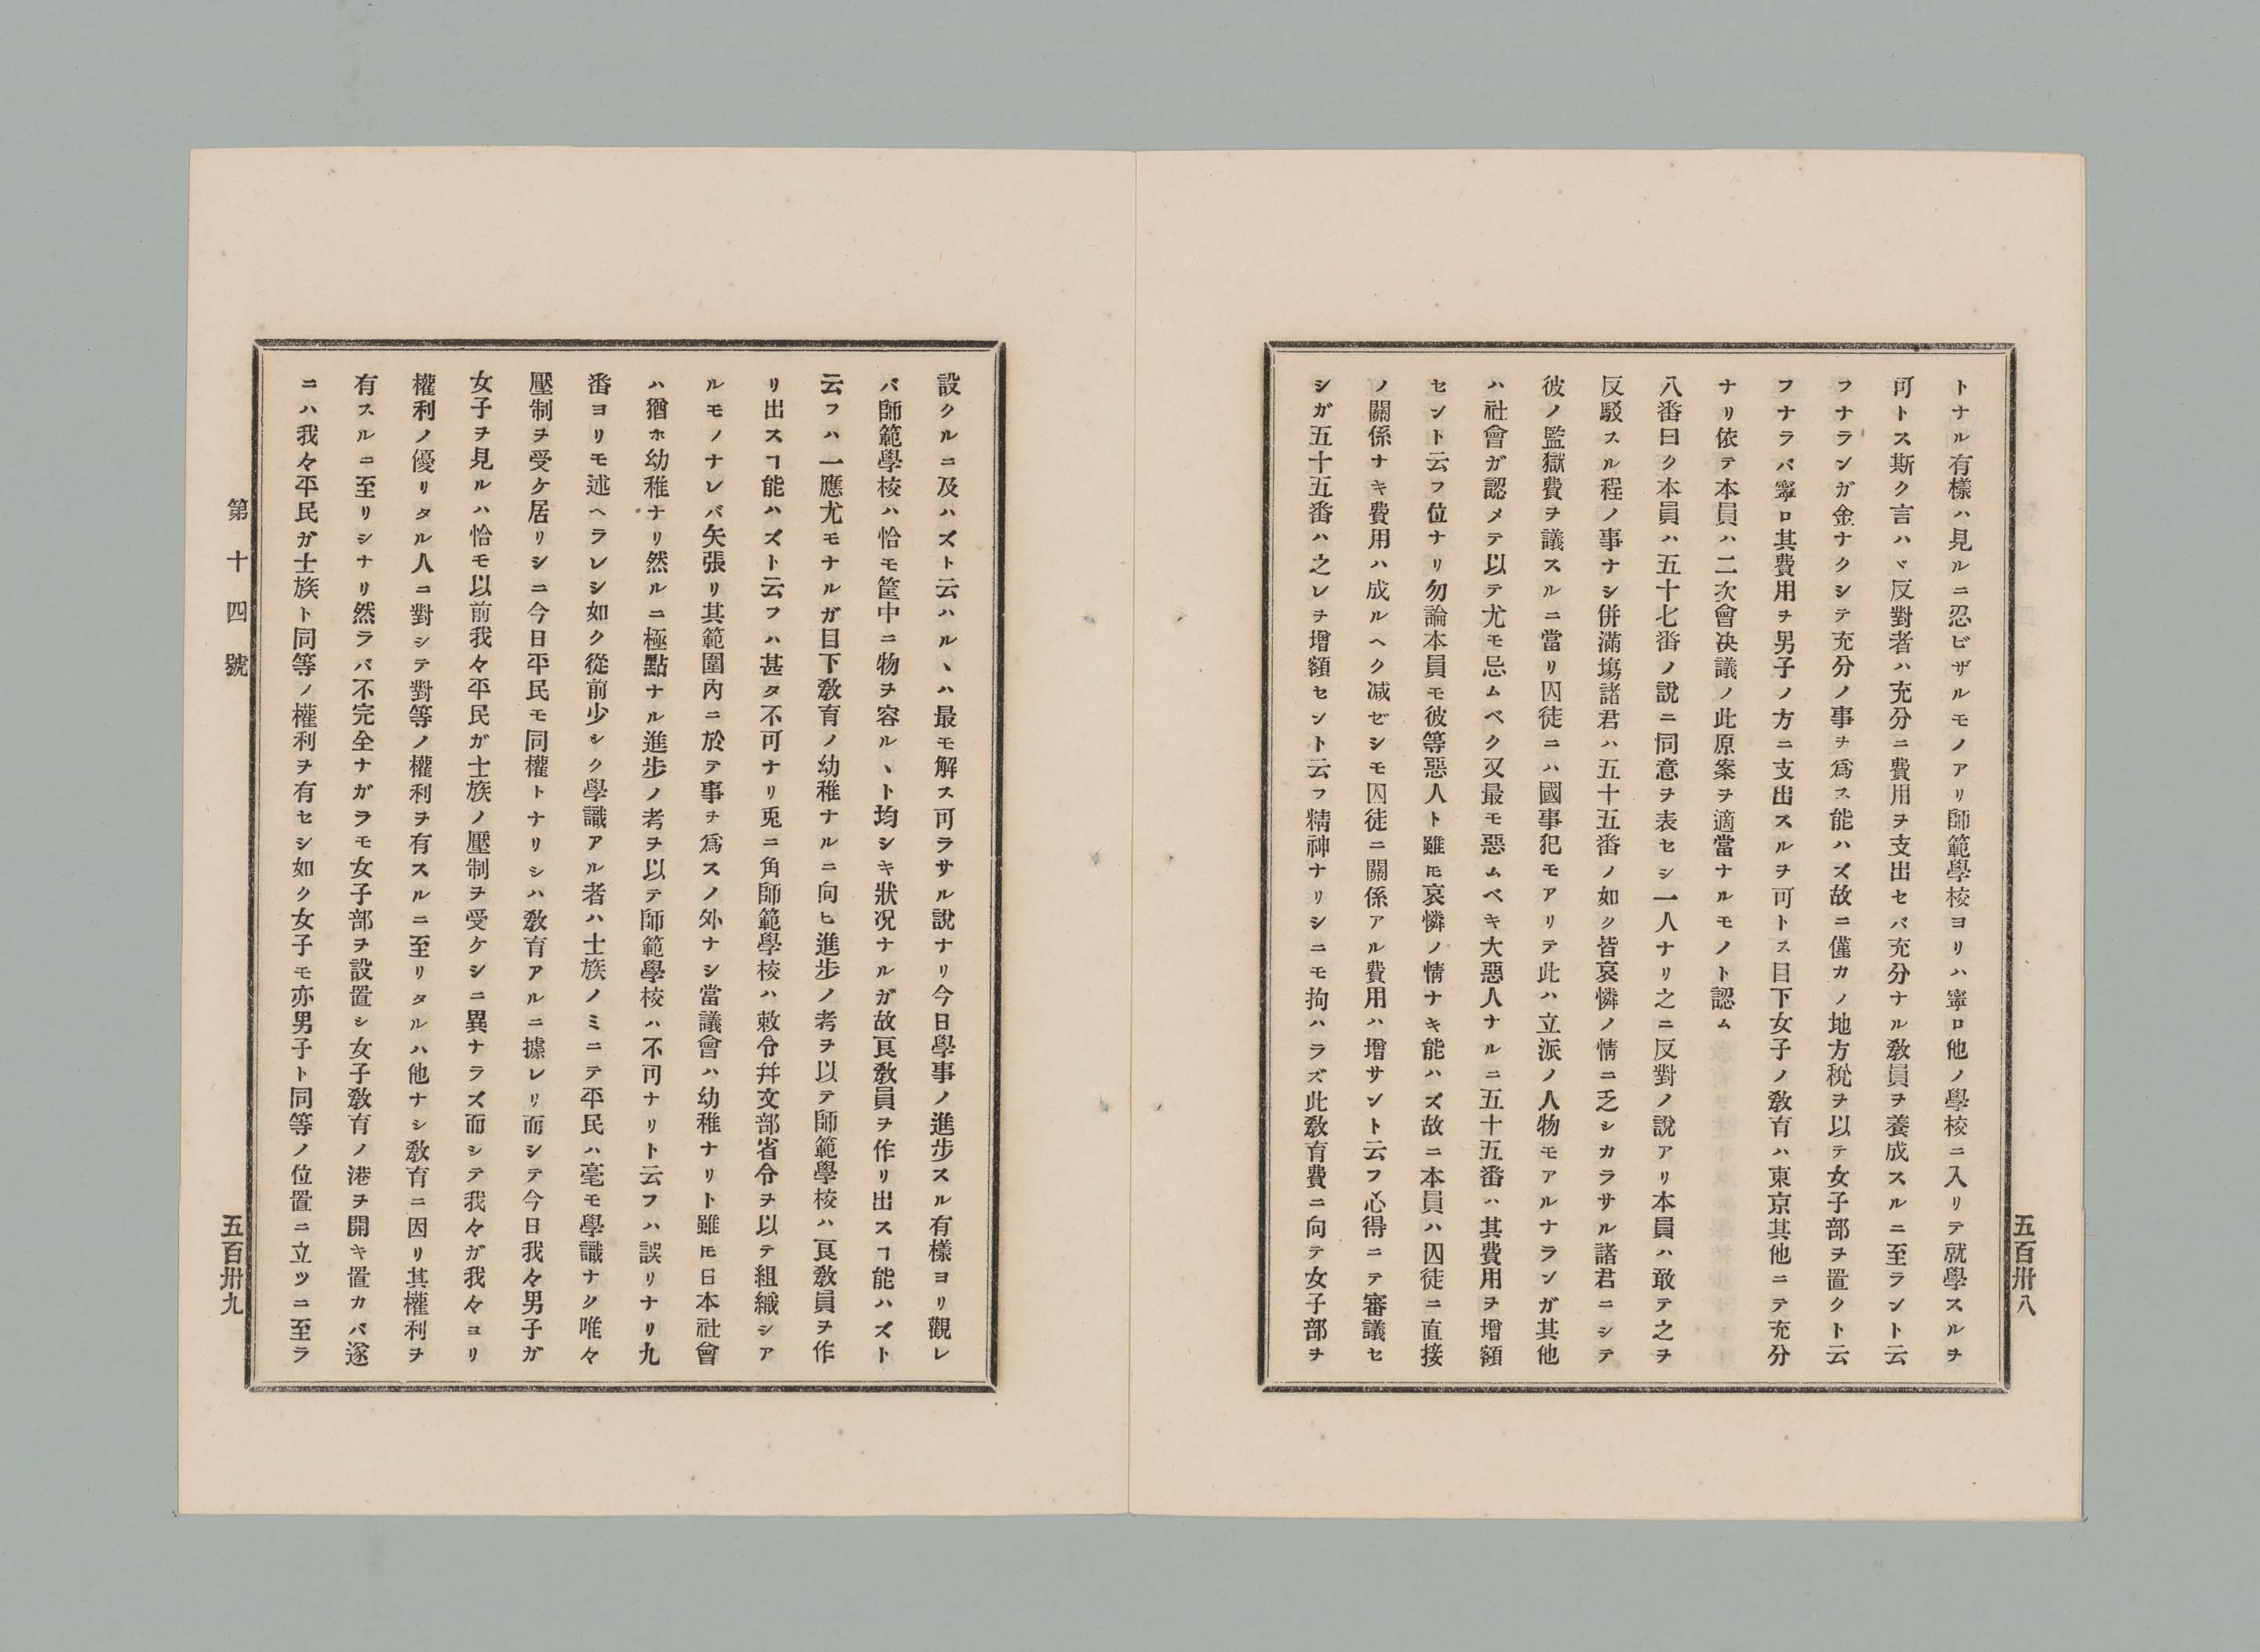 五百卅八
トナル有樣ハ見ルニ忍ビザルモノアリ師範學校ヨリハ寧ロ他ノ學校ニ入リテ就學スルヲ
可トス斯ク言ハヾ反對者ハ充分ニ費用ヲ支出セバ充分ナル敎員ヲ養成スルニ至ラント云
フナランガ金ナクシテ充分ノ事ヲ爲ス能ハズ故ニ僅カノ地方稅ヲ以テ女子部ヲ置クト云
フナラバ寧ロ其費用ヲ男子ノ方ニ支出スルヲ可トス目下女子ノ敎育ハ東京其他ニテ充分
ナリ依テ本員ハ二次會决議ノ此原案ヲ適當ナルモノト認ム
八番曰ク本員ハ五十七番ノ說ニ同意ヲ表セシ一人ナリ之ニ反對ノ說アリ本員ハ敢テ之ヲ
反駁スル程ノ事ナシ併滿塲諸君ハ五十五番ノ如ク皆哀憐ノ情ニ乏シカラサル諸君ニシテ
彼ノ監獄費ヲ議スルニ當リ囚徒ニハ國事犯モアリテ此ハ立派ノ人物モアルナランガ其他
ハ社會ガ認メテ以テ尤モ忌ムベク又最モ惡ムベキ大惡人ナルニ五十五番ハ其費用ヲ增額
セント云フ位ナリ勿論本員モ彼等惡人ト雖𪜈哀憐ノ情ナキ能ハズ故ニ本員ハ囚徒ニ直接
ノ關係ナキ費用ハ成ルヘク减ゼシモ囚徒ニ關係アル費用ハ增サント云フ心得ニテ審議セ
シガ五十五番ハ之レヲ增額セント云フ精神ナリシニモ拘ハラズ此敎育費ニ向テ女子部ヲ
設クルニ及ハズト云ハル、ハ最モ解ス可ラサル說ナリ今日學事ノ進步スル有樣ヨリ觀レ
バ師範學校ハ恰モ筐中ニ物ヲ容ル、ト均シキ狀况ナルガ故良敎員ヲ作リ出スヿ能ハズト
云フハ一應尤モナルガ目下敎育ノ幼稚ナルニ向ヒ進步ノ考ヲ以テ師範學校ハ良敎員ヲ作
リ出スヿ能ハズト云フハ甚タ不可ナリ兎ニ角師範學校ハ敕令幷文部省令ヲ以テ組織シア
ルモノナレバ矢張リ其範圍內ニ於テ事ヲ爲スノ外ナシ當議會ハ幼稚ナリト雖𪜈日本社會
ハ猶ホ幼稚ナリ然ルニ極點ナル進步ノ考ヲ以テ師範學校ハ不可ナリト云フハ誤リナリ九
番ヨリモ述ヘラレシ如ク從前少シク學識アル者ハ士族ノミニテ平民ハ毫モ學識ナク唯々
壓制ヲ受ケ居リシニ今日平民モ同權トナリシハ敎育アルニ據レリ而シテ今日我々男子ガ
女子ヲ見ルハ恰モ以前我々平民ガ士族ノ壓制ヲ受ケシニ異ナラズ而シテ我々ガ我々ヨリ
權利ノ優リタル人ニ對シテ對等ノ權利ヲ有スルニ至リタルハ他ナシ敎育ニ因リ其權利ヲ
有スルニ至リシナリ然ラバ不完全ナガラモ女子部ヲ設置シ女子敎育ノ港ヲ開キ置カバ遂
ニハ我々平民ガ士族ト同等ノ權利ヲ有セシ如ク女子モ亦男子ト同等ノ位置ニ立ツニ至ラ
第十四號
五百卅九